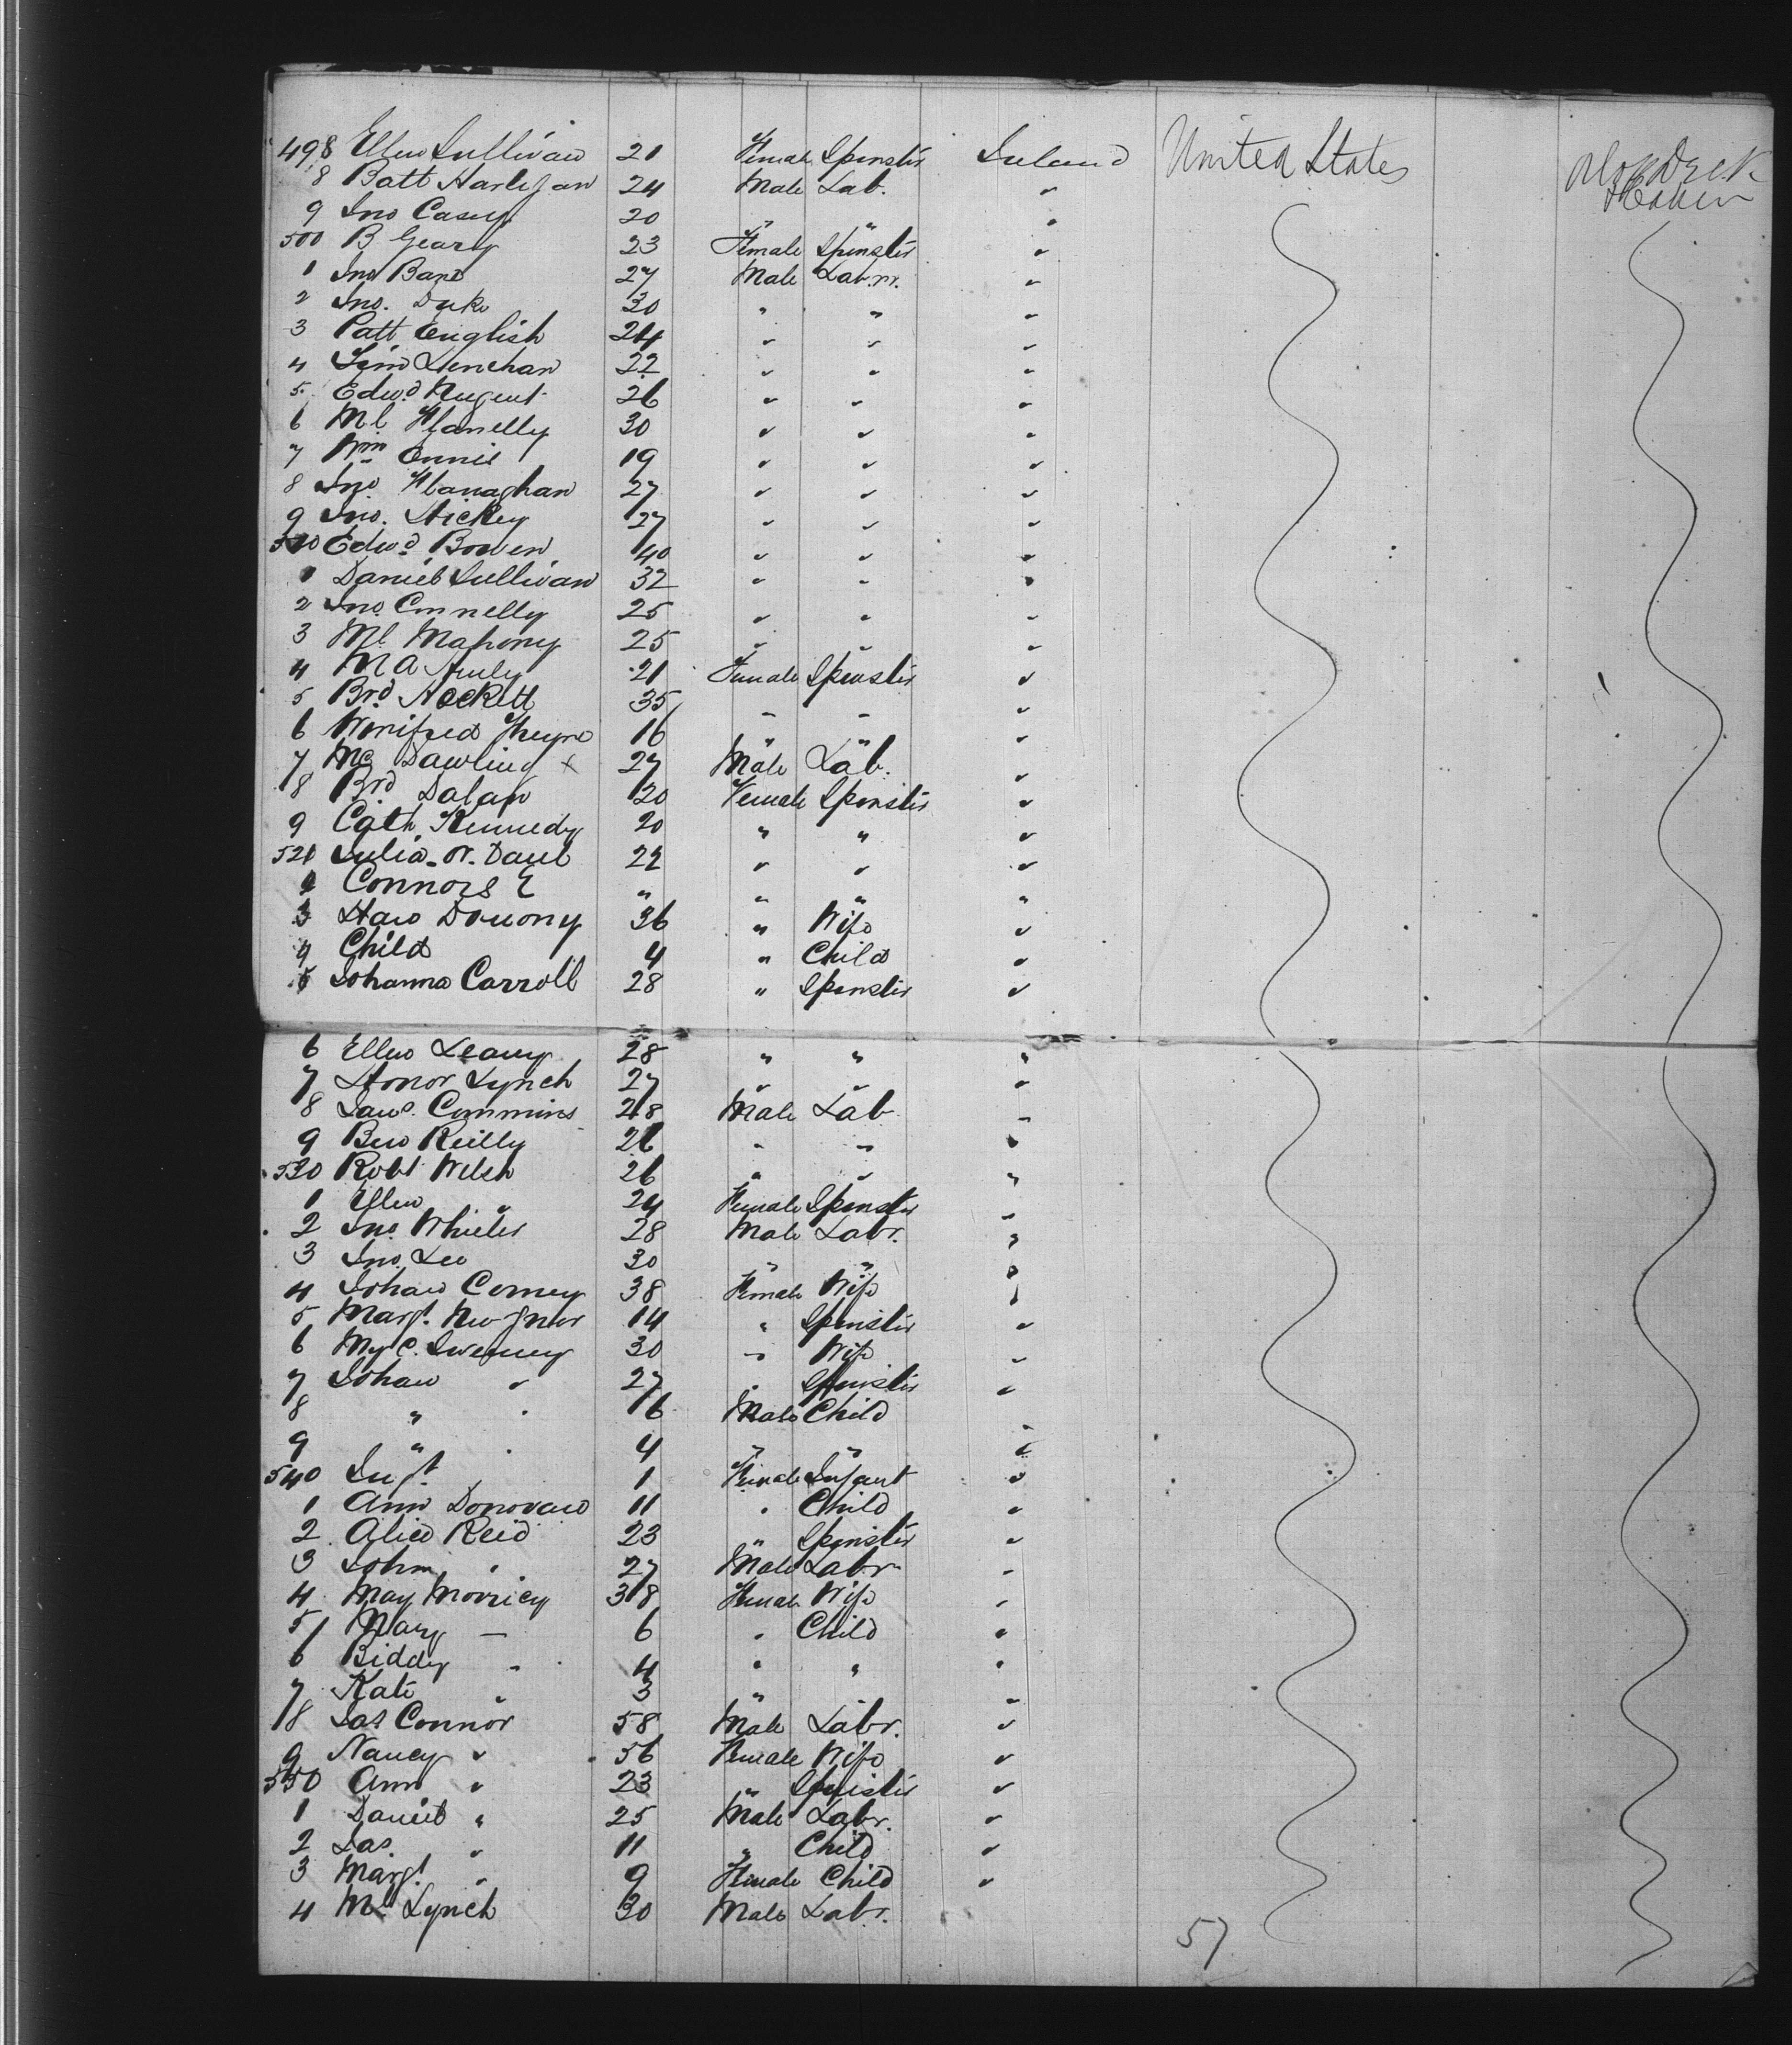 498 Ellen Sullivan 21 Female Spinster Ireland United States
8 Batt Hartigan 24 Male Lab. "
9 Jno Casey 20 " " "
500 B Geary 23 Female Spinster "
1 Jno Bane 27 Male Labr. "
2 Jno. Duke 30 " " "
3 Patt English 24 " " "
4 Lenehan 22 " " "
5 Edwd Nugent 26 " " "
6 Ml Flanelly 30 " " "
7 Wm Ennis 19 " " "
8 Jno Flanaghan 27 " " "
9 Jno. Hickey 27 " " "
510 Edwd Bowen 40 " " "
1 Daniel Sullivan 32 " " "
2 Jno Connelly 25 " " "
3 Ml Mahony 25 " " "
4 M A 21 Female Spinster "
5 Brd Hackett 35 " " "
6 Winifred 16 " " "
7 Dawling x 27 Male Lab. "
8 Brd Dolan 20 Female Spinster "
9 Cath Kennedy 20 " " "
521 Julia 22 " " "
Connors " " " "
3 36 " Wife "
4 Child 4 " Child "
5 Johanna Carroll 28 " Spinster "
6 Ellen Leany 28 " " "
7 Honor Lynch 27 " " "
8 Commins 28 Male Lab "
9 Reilly 26 " " "
530 Robt Welsh 26 " " "
1 Ellen " 24 Female Spinster "
2 Jno. Wheeler 28 Male Labr. "
3 Jno. Lee 30 " " "
4 Johan 38 Female Wife "
5 Margt. 14 " Spinster "
6 Sweeney 30 " Wife "
7 Johan " 27 " Spinster "
8 " " 6 Male Child "
9 " " 4 " " "
540 Inft. 1 Female Infant "
1 Ann Donovan 11 " Child "
2 Alice Reid 23 " Spinster "
3 John " 27 Male Labr "
4 May 38 Female Wife "
5 Mary " 6 " Child "
6 Biddy " 4 " " "
7 Kate " 3 " "
8 Jas Connor 58 Male Labr. "
9 Nancy " 56 Female Wife "
550 Ann " 23 " Spinster "
1 Daniel " 25 Male Labr. "
2 Jas. " 11 " Child "
3 Margt. " 9 Female Child "
4 Lynch 30 Male Labr.
57